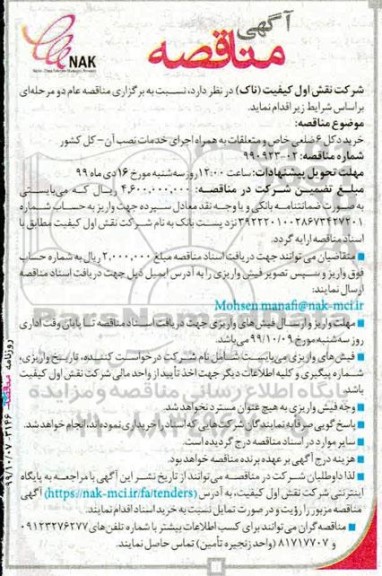 آگهی
مناقصه
NAK
شرکت نقش اول کیفیت (ناک) در نظر دارد، نسبت به برگزاری مناقصه عام دو مرحله‌ای
براساس شرایط زیر اقدام نماید.
موضوع مناقصه:
خرید دکل ۶ ضلعی خاص و متعلقات به همراه اجرای خدمات نصب آن - کل کشور
شماره مناقصه: ۰۲-۹۹۰۹۲۳
مهلت تحویل پیشنهادات: ساعت ۱۲:۰۰ روز سه شنبه مورخ ۱۶ دی ماه ۹۹
مبلغ تضمین شرکت در مناقصه: ۴,۶۰۰,۰۰۰,۰۰۰ ریال که می‌بایستی
به صورت ضمانتنامه بانکی و یا وجه نقد معادل سپرده جهت واریز به حساب شماره
نزد پست بانک به نام شرکت نقش اول کیفیت مطابق با
اسناد مناقصه ارایه گردد.
متقاضیان می توانند جهت دریافت اسناد مناقصه مبلغ ۲,۰۰۰,۰۰۰ ریال به شماره حساب
فوق واریز و سپس تصویر فیش واریزی را به آدرس ایمیل ذیل جهت دریافت اسناد مناقصه
ارسال نمایند:
Mohsen.manafi@nak-mci.ir
مهلت واریز و ارسال فیش های واریزی جهت دریافت اسناد مناقصه تا پایان وقت اداری
روز سه شنبه مورخ ۹۹/۱۰/۰۹ می‌باشد.
فیش‌های واریزی می‌بایست شامل نام شرکت درخواست کننده، تاریخ واریزی،
شماره پیگیری و کلیه اطلاعات دیگر جهت اخذ تأیید از واحد مالی شرکت نقش اول کیفیت
باشد.
وجه فیش واریزی به هیچ عنوان مسترد نخواهد شد.
پاسخ گویی صرفا به نمایندگان شرکت هایی که اسناد را خریداری نموده‌اند، انجام خواهد شد.
سایر موارد در اسناد مناقصه درج گردیده است.
هزینه درج آگهی بر عهده برنده مناقصه خواهد بود.
لذا داوطلبان شرکت در مناقصه می توانند از تاریخ نشر این آگهی با مراجعه به پایگاه
اینترنتی شرکت نقش اول کیفیت، به آدرس (https://nak-mci.ir/fa/tenders) آگهی
مناقصه مزبور را رؤیت و در صورت تمایل نسبت به خرید اسناد اقدام نمایند.
مناقصه گران می توانند برای کسب اطلاعات بیشتر با شماره تلفن های ۰۹۱۲۳۲۷۶۲۷۷
و ۸۱۷۱۷۷۰۷ (واحد زنجیره تأمین) تماس حاصل نمایند.
روزنامه
۹۹/۱۰/۰۷